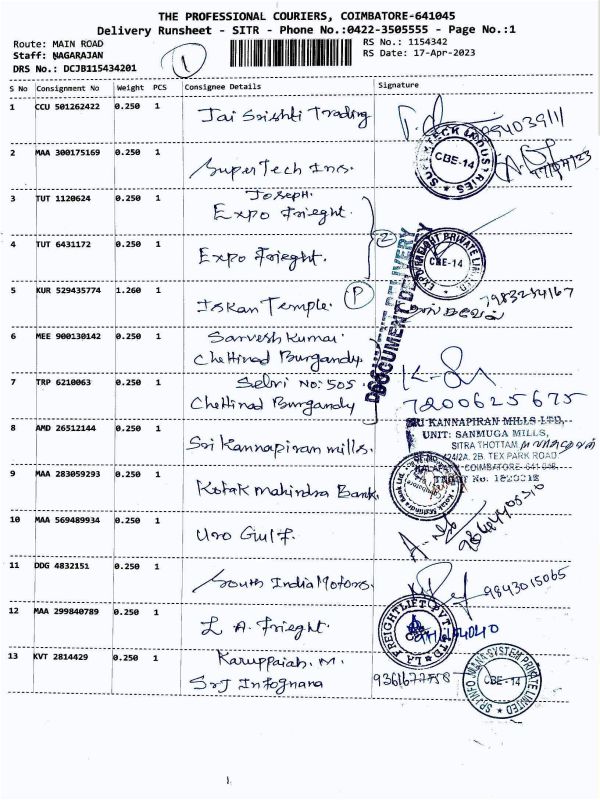 THE PROFESSIONAL COURIERS, COIMBATORE-641045
Delivery Runsheet - SITR - Phone No.:0422-3505555 - Page No.:1
Route: MAIN ROAD
RS No.: 1154342
Staff: NAGARAJAN
RS Date: 17-Apr-2023
DRS No.: DCJB115434201
1
S No Consignment No Weight PCS Consignee Details Signature
1 CCU 501262422 0.250 1 Jai Srishti Trading
2 MAA 300175169 0.250 1 SuperTech Inds.
SUPERTECK INDUSTRIES
CBE-14
3 TUT 1120624 0.250 1 Joseph.
Expo Frieght.
2
4 TUT 6431172 0.250 1 Expo Frieght.
CBE-14
DOCUMENT DELIVERY
5 KUR 529435774 1.260 1 Iskan Temple. P
6 MEE 900130142 0.250 1 Sarvesh Kumar.
Chettinad Burgandy.
7 TRP 6210063 0.250 1 Selvi No: 505.
Chettinad Burgandy
7200625675
8 AMD 26512144 0.250 1 Sri Kannapiran mills.
SRI KANNAPIRAN MILLS LTD,
UNIT: SANMUGA MILLS,
SITRA THOTTAM
424/2A, 2B, TEX PARK ROAD
COIMBATORE- 641
9 MAA 283059293 0.250 1 Kotak Mahindra Bank.
Kotak Mahindra Bank Ltd.
10 MAA 569489934 0.250 1 Uro Gulf.
11 DDG 4832151 0.250 1 South India Motors.
9843015065
12 MAA 299840789 0.250 1 L A. Frieght.
LA FREIGHTLIFT PVT LTD
13 KVT 2814429 0.250 1 Karuppaiah. M.
SRJ Infognana
CBE-14